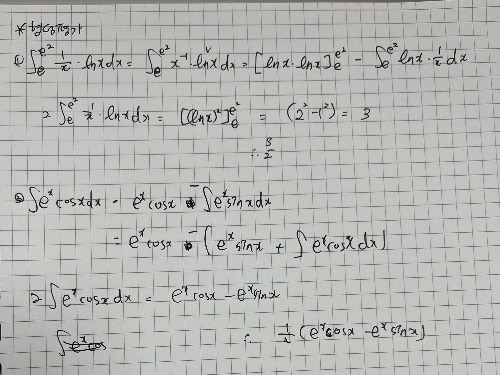 ① ∫_e^{e²} 1/x · lnx dx = ∫_e^{e²} x⁻¹ · lnx dx = [lnx · lnx]_e^{e²} - ∫_e^{e²} lnx · 1/x dx
2 ∫_e^{e²} 1/x · lnx dx = [(lnx)²]_e^{e²} = (2² - 1²) = 3
∴ 3/2
② ∫ eˣ cosx dx = eˣ cosx - ∫ eˣ sinx dx
= eˣ cosx - ( eˣ sinx + ∫ eˣ cosx dx )
2 ∫ eˣ cosx dx = eˣ cosx - eˣ sinx
∴ 1/2 (eˣ cosx - eˣ sinx)